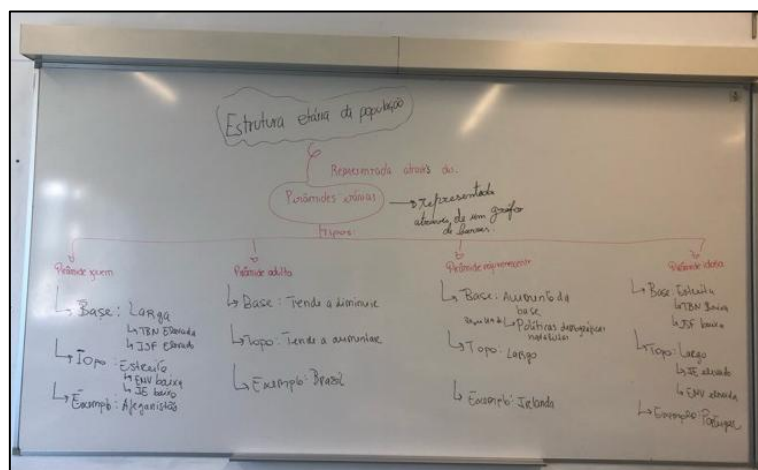 Estrutura etária da população
Representada através de:
Pirâmides etárias
representada
através de um gráfico
de barras.
tipos
Pirâmide jovem
Base: Larga
TBN Elevada
ISF Elevado
Topo: Estreito
EMV baixa
IE baixo
Exemplo: Afeganistão
Pirâmide adulta
Base: Tende a diminuir
Topo: Tende a aumentar
Exemplo: Brasil
Pirâmide rejuvenescente
Base: Aumento da
base
Políticas demográficas
natalistas
Topo: Largo
Exemplo: Irlanda
Pirâmide idosa
Base: Estreita
TBN Baixa
ISF baixa
Topo: Largo
IE elevado
EMV elevada
Exemplo: Portugal